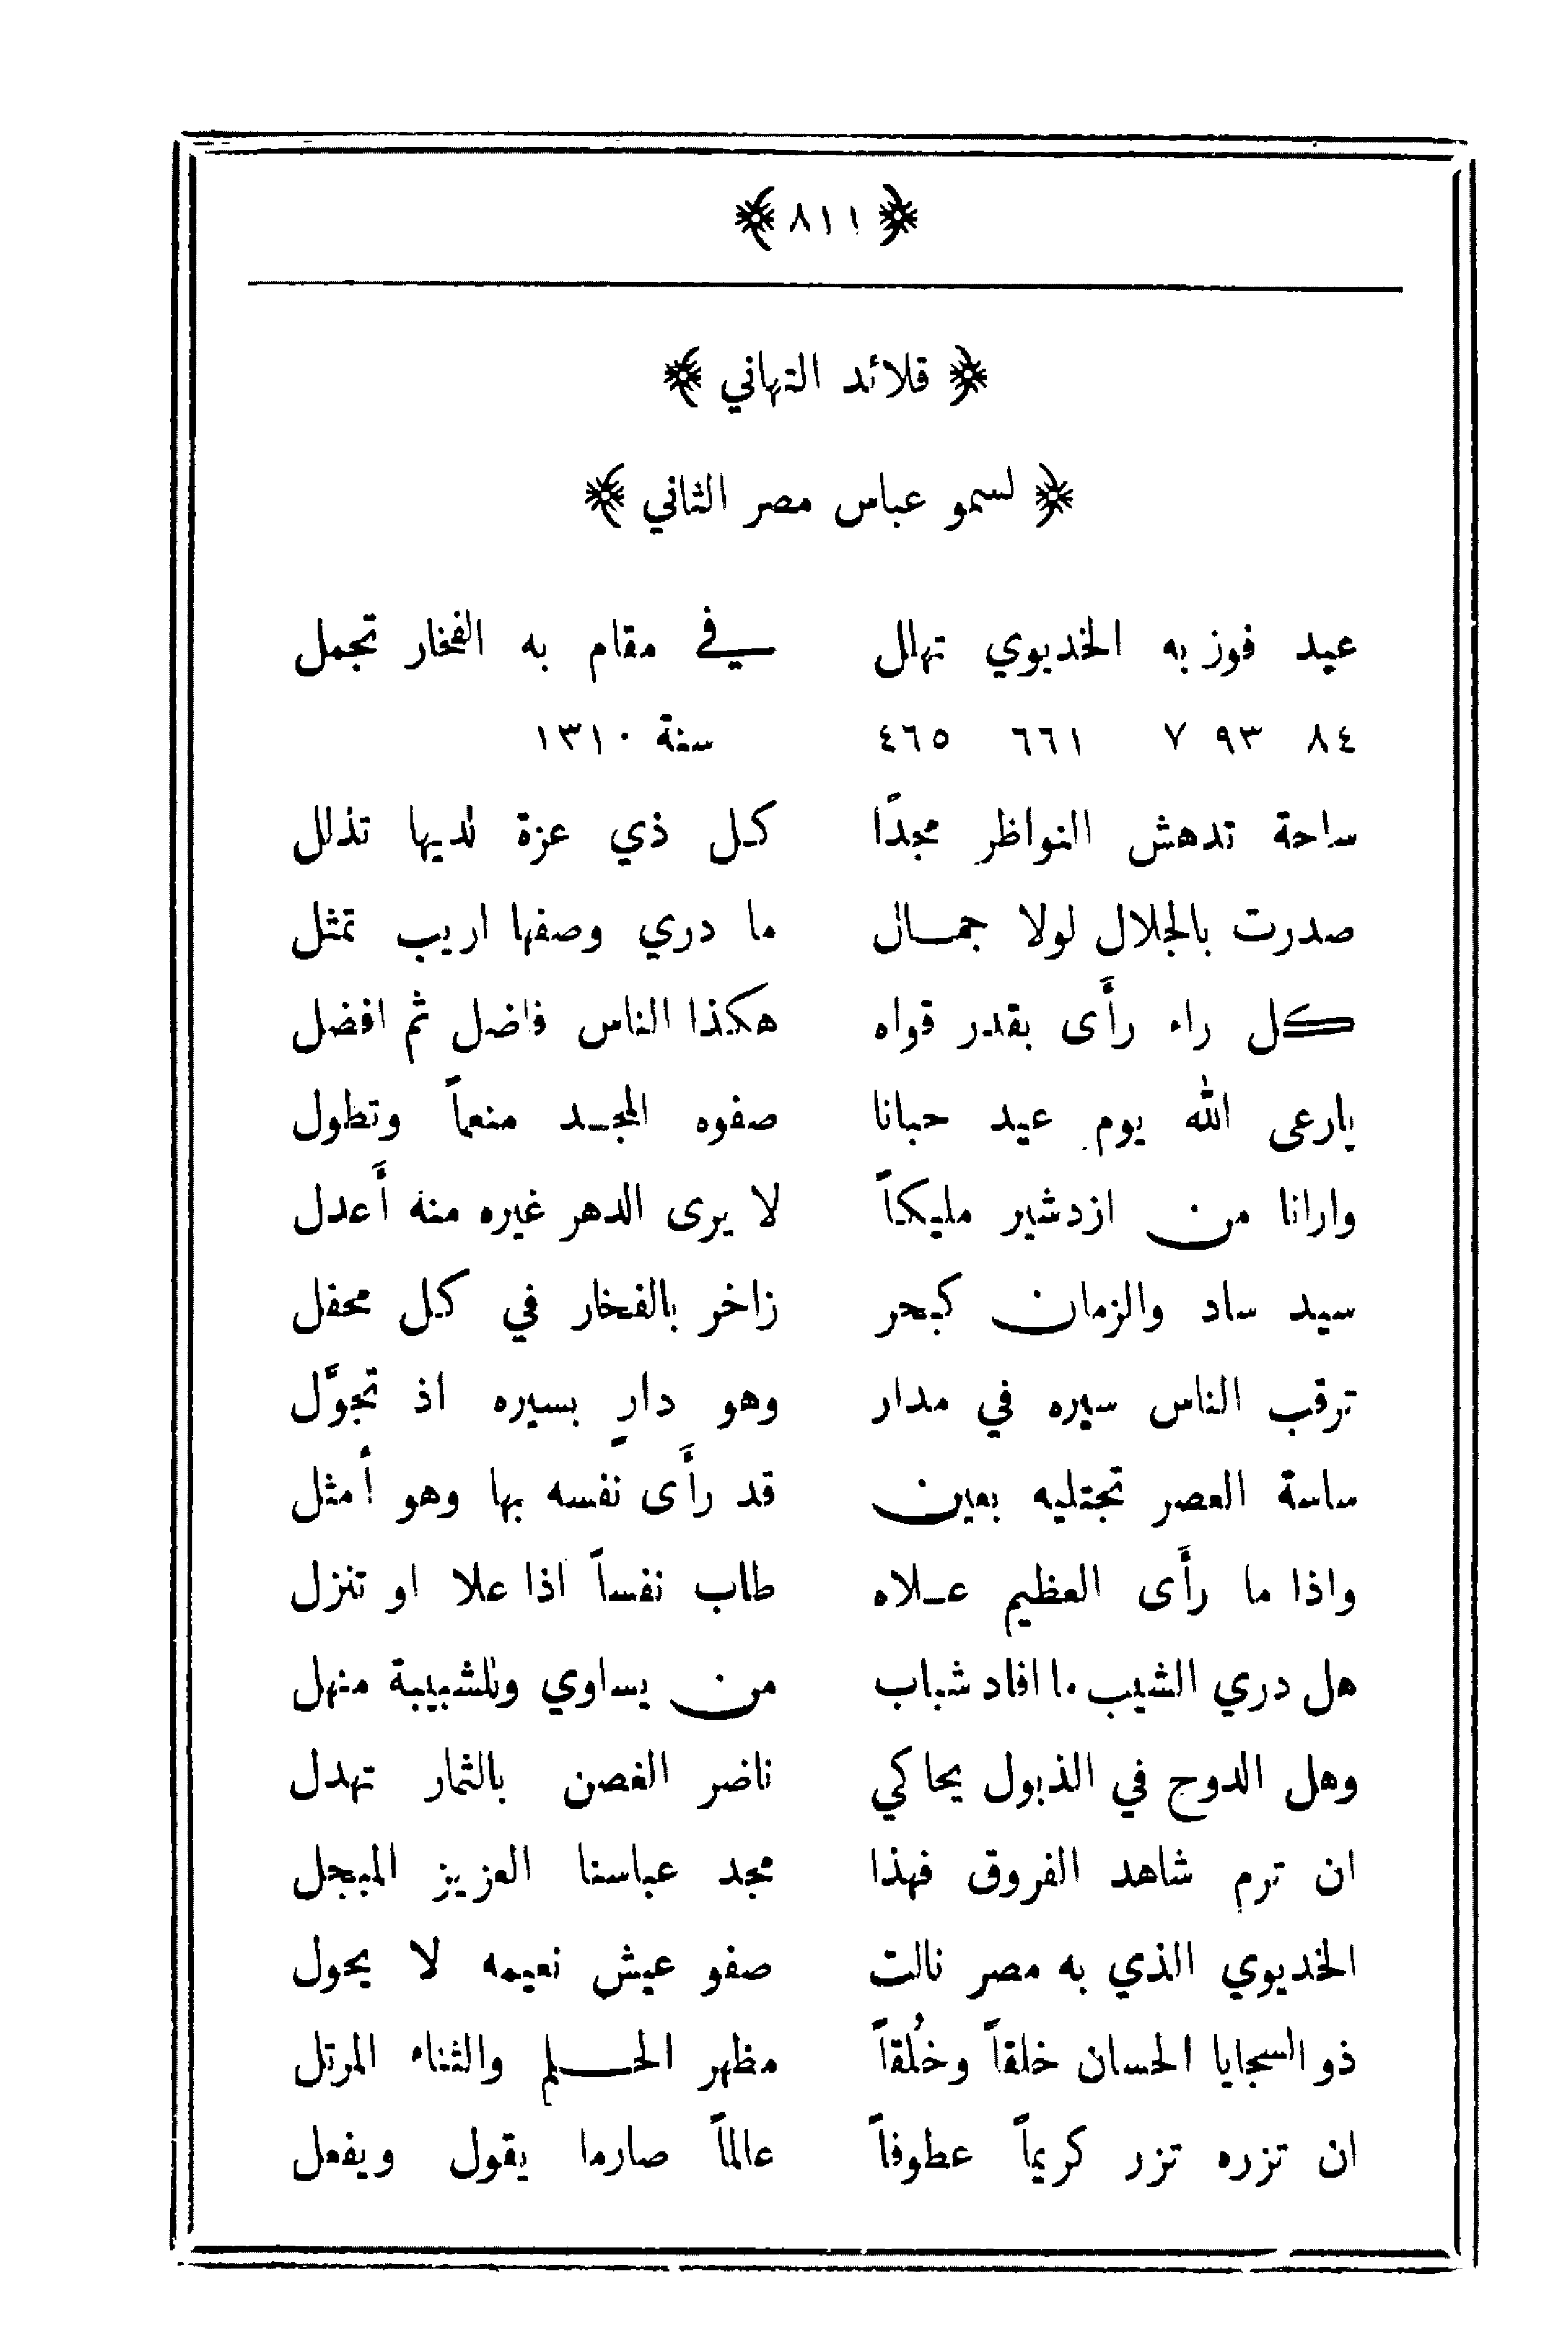 ﴿ ٨١١ ﴾
﴿ قلائد التهاني ﴾
﴿ لسمو عباس مصر الثاني ﴾
عيد فوز به الخديوي تهلل في مقام به الفخار تجمل
٨٤ ٩٣ ٧ ٦٦١ ٤٦٥ سنة ١٣١٠
ساحة تدهش النواظر مجدًا كل ذي عزة لديها تذلل
صدرت بالجلال لولا جمال ما دري وصفها اريب تمثل
كل راء رأَى بقدر قواه هكذا الناس فاضل ثم افضل
يارعى الله يوم عيد حبانا صفوه المجد منعماً وتطول
وارانا من ازدشير مليكاً لا يرى الدهر غيره منه أَعدل
سيد ساد والزمان كبحر زاخر بالفخار في كل محفل
ترقب الناس سيره في مدار وهو دارٍ بسيره اذ تجوَّل
ساسة العصر تجتليه بعين قد رأَى نفسه بها وهو أمثل
واذا ما رأَى العظيم علاه طاب نفساً اذا علا او تنزل
هل دري الشيب ما افاد شباب من يساوي وللشبيبة منهل
وهل الدوح في الذبول يحاكي ناضر الغصن بالثمار تهدل
ان ترم شاهد الفروق فهذا مجد عباسنا العزيز المبجل
الخديوي الذي به مصر نالت صفو عيش نعيمه لا يحول
ذو السجايا الحسان خلقاً وخُلقاً مظهر الحلم والثناء المرتل
ان تزره تزر كريماً عطوفاً عالماً صارما يقول ويفعل